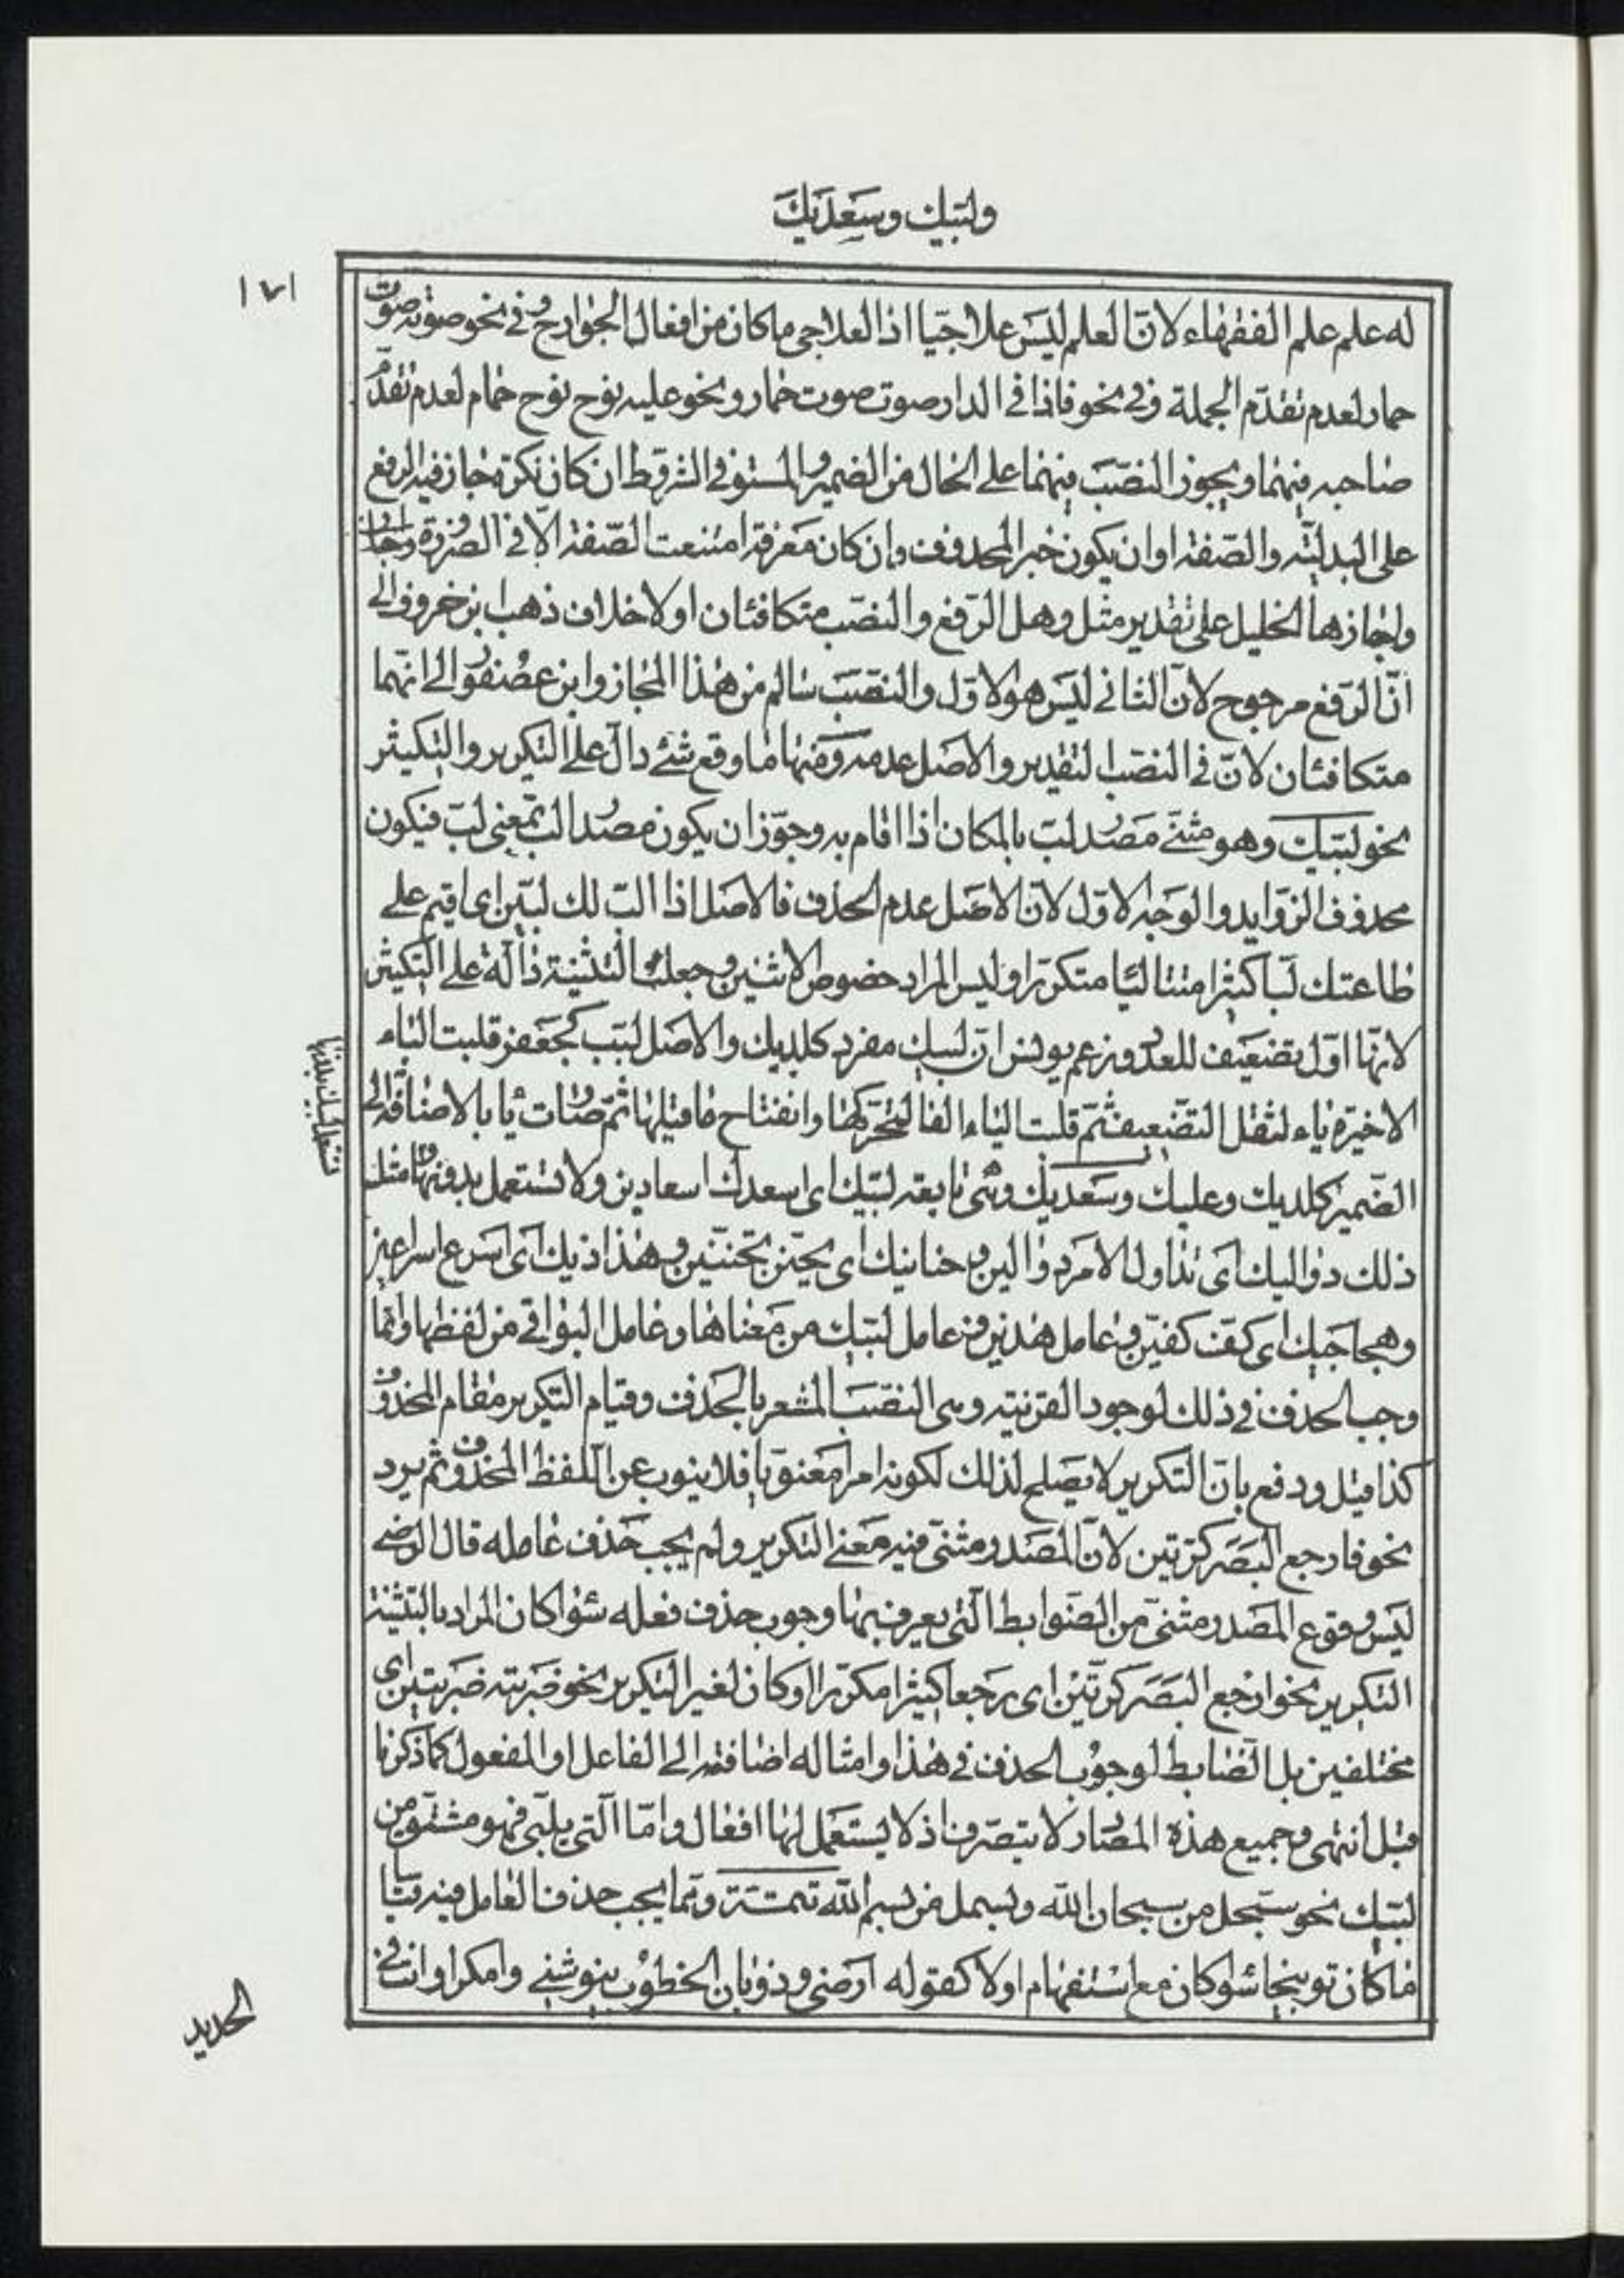 ولبيك وسعديك
١٧١
له علم علم الفقهاء لانّ العلم ليس علاجيّا اذ العلاجي ما كان من افعال الجوارح وفي نحو صوته صوت
حمار لعدم تقدّم الجملة وفي نحو فاذا في الدار صوت صوت حمار ونحو عليه نوح نوح حمام لعدم تقدّم
صاحبه فيهما ويجوز النصب فيهما على الحال من الضمير والمستوفي الشروط ان كان نكرة جاز فيه الرفع
على البدليّة والصّفة او ان يكون خبر المحذوف وان كان معرفة امتنعت الصّفة الّا في الضرورة
واجازها الخليل على تقدير مثل وهل الرّفع والنصب متكافئان اولا خلاف ذهب ابن خروف الى
انّ الرّفع مرجوح لانّ الثاني ليس هو الاوّل والنصب سالم من هذا المجاز وابن عصفور الى انّهما
متكافئان لانّ في النصب التقدير والاصل عدمه ومنها ما وقع شئ دالّ على التكرير والتكثير
نحو لبّيك وهو مثنّى مصدر لبّ بالمكان اذا اقام به وجوّز ان يكون مصدر البّ بمعنى لبّ فيكون
محذوف الزّوايد والوجه الاوّل لانّ الاصل عدم الحذف فالاصل اذا البّ لك لبّين اى اقيم على
طاعتك لبّا كثيرا متتاليا متكرّرا وليس المراد خصوص الاثنين وجعلت التثنية دالّة على التكثير
لانّها اوّل تضعيف للعدد وزعم يونس انّ لبيك مفرد كلديك والاصل لبّب كجعفر قلبت الباء
الاخيرة ياء لثقل التضعيف ثمّ قلبت الياء الفا لتحرّكها وانفتاح ما قبلها ثمّ صارت يا بالاضافة الى
الضّمير كلديك وعليك وسعديك وهى تابعة لبّيك اى اسعدك اسعادين ولا تستعمل بدونها ومثل
ذلك دواليك اى تداول الامر دوالين وحنانيك اى تحنّن تحنّنين وهذاذيك اى اسرع اسراعين
وهجاجيك اى كفّ كفّين وعامل هذين وعامل لبّيك من معناها وعامل البواقي من لفظها وانّما
وجب الحذف في ذلك لوجود القرنية وهى النصب المشعر بالحذف وقيام التكرير مقام المحذوف
كذا قيل ودفع بانّ التكرير لا يصلح لذلك لكونه امرا معنويا فلا ينوب عن اللّفظ المحذوف ثم يرد
نحو فارجع البصر كرّتين لانّ المصدر مثنّى فيه معنى التكرير ولم يجب حذف عامله قال الرضى
ليس وقوع المصدر مثنّى من الضّوابط الّتى يعرف بها وجوب حذف فعله سواء كان المراد بالتثنية
التكرير نحو ارجع البصر كرّتين اى رجعا كثيرا مكرّرا او كان لغير التكرير نحو ضربته ضربتين اى
مختلفين بل الضّابط لوجوب الحذف في هذا وامثاله اضافته الى الفاعل او المفعول كما ذكرنا
قبل انتهى وجميع هذه المصادر لا تتصرّف اذ لا يستعمل لها افعال وامّا الّتى يلبّى فهو مشتق من
لبّيك نحو سبحل من سبحان الله وبسمل من بسم الله تتمّة وممّا يجب حذف العامل فيه قياسا
ما كان توبيخا سواء كان مع استفهام اولا كقوله ارضى وذوبان الخطوب تنوشنى وامكرا وانت في
الحديد